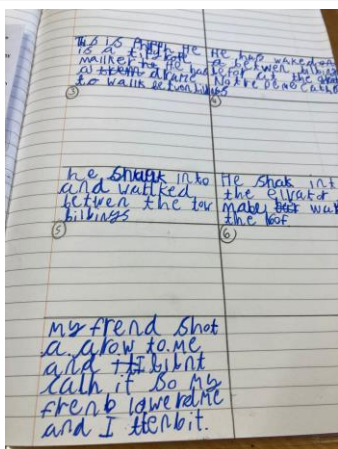 This is Philip He
is a tigtrop
mallker he He had
a them drame
to wallk betven bilbings
③
He has waked on
a betwen bilbings
befor at the
Notre Deme Cathe
④
he shunk into
and wallked
betven the tow
bilbings
⑤
He shak int
the elvatof
mabe but wak
the roof.
⑥
my frend shot
a arow to me
and it I bibnt
cath it so my
frenb lowerd me
and I ttenbit.